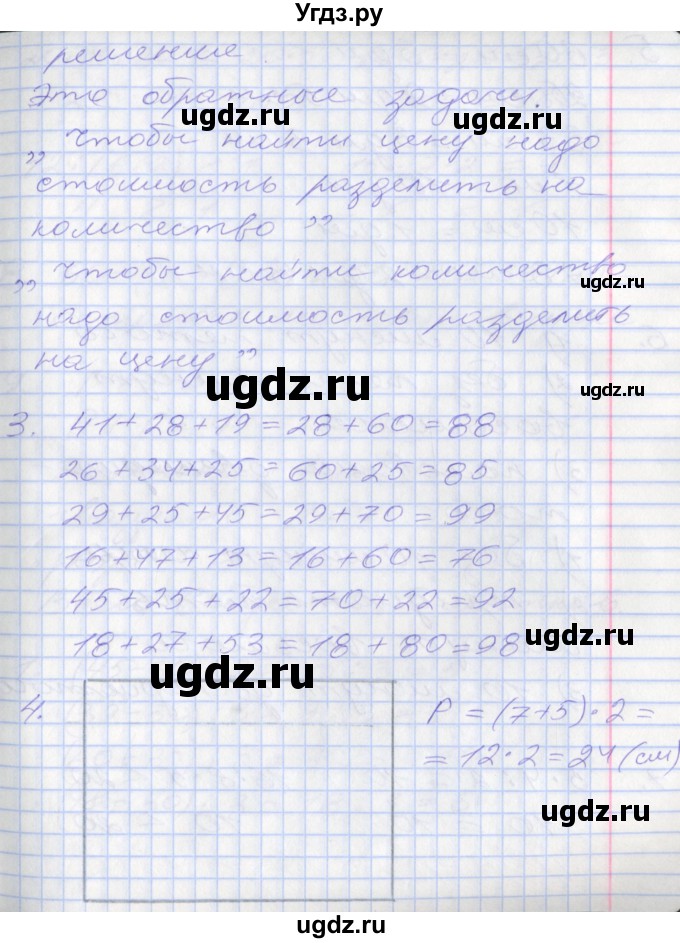 Угдз.ру
решение.
Это обратные задачи.
„ Чтобы найти цену надо
стоимость разделить на
количество ”
„ Чтобы найти количество
надо стоимость разделить
на цену ”
3. 41 + 28 + 19 = 28 + 60 = 88
26 + 34 + 25 = 60 + 25 = 85
29 + 25 + 45 = 29 + 70 = 99
16 + 47 + 13 = 16 + 60 = 76
45 + 25 + 22 = 70 + 22 = 92
18 + 27 + 53 = 18 + 80 = 98
4. P = (7+5) · 2 =
= 12 · 2 = 24 (см)
ugdz.ru
ugdz.ru
ugdz.ru
ugdz.ru
ugdz.ru
ugdz.ru
ugdz.ru
ugdz.ru